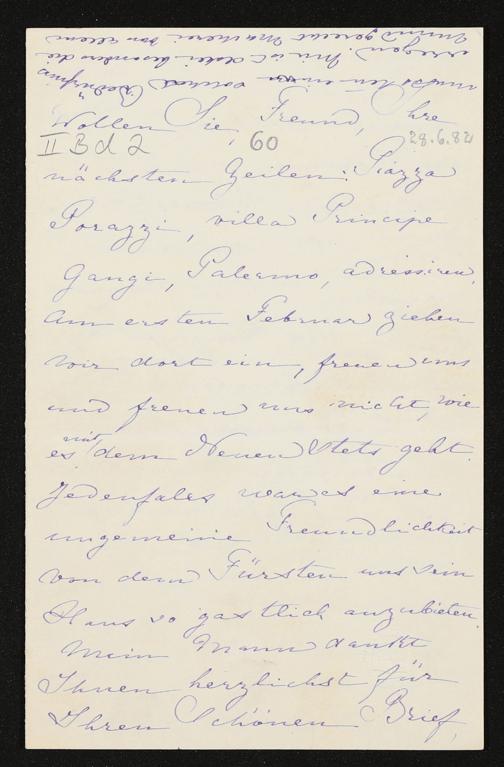 Wollen Sie, Freund, Ihre
II B d 2 60 28.6.82
nächsten Zeilen: Piazza
Porazzi, villa Principe
Gangi, Palermo, adressiren.
Am ersten Februar ziehen
wir dort ein, freuen uns
und freuen uns nicht, wie
es mit dem Neuen stets geht.
Jedenfalls war es eine
ungemeine Freundlichkeit
von dem Fürsten uns sein
Haus so gastlich anzubieten.
Mein Mann dankt
Ihnen herzlichst für
Ihren Schönen Brief,
müssten
erregen. Mir ist dabei besonders die